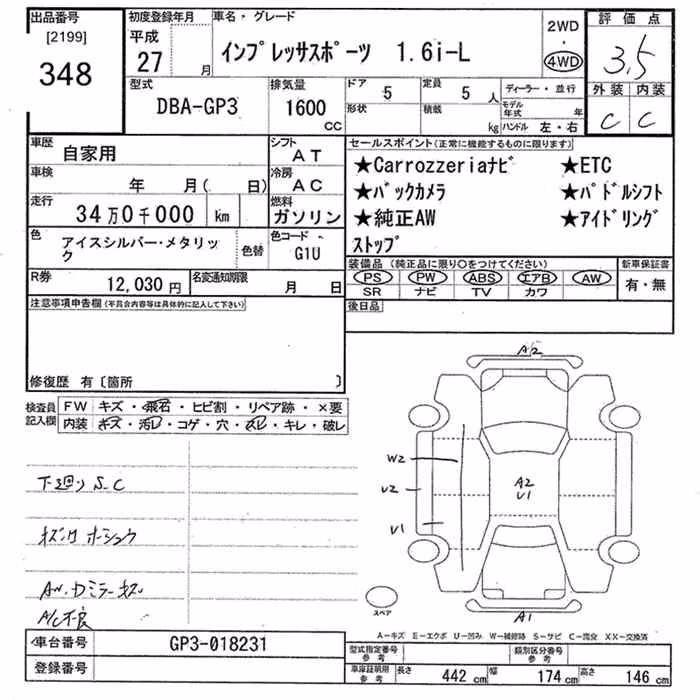 出品番号
[2199]
348
初度登録年月
平成
27 月
車名・グレード
インプレッサスポーツ 1.6i-L
2WD
・
4WD
評価点
3.5
外装 内装
C C
型式
DBA-GP3
排気量
1600
CC
ドア 5
形状
定員 5 人
積載 kg
ディーラー・並行
モデル年式 年
ハンドル 左・右
車歴 自家用
シフト
AT
車検 年 月( 日)
冷房
AC
走行 34万0千000 km
燃料
ガソリン
色 アイスシルバー・メタリック
色替
色コード
G1U
R券 12,030円
名変通知期限 月 日
セールスポイント(正常に機能するものに限ります)
★Carrozzeriaナビ ★ETC
★バックカメラ ★パドルシフト
★純正AW ★アイドリング
ストップ
装備品 (純正品に限り○をつけてください)
PS PW ABS エアB AW
SR ナビ TV カワ
新車保証書
有・無
後日品
注意事項申告欄(車両会内容等は具体的に記入して下さい)
修復歴 有〔箇所 〕
検査員記入欄
FW キズ・飛石・ヒビ割・リペア跡・×要
内装 キズ・汚レ・コゲ・穴・スレ・キレ・破レ
下廻り S.C
AW.ドミラーキズ
A/C不良
A2
W2
U2
U1
A2
U1
スペア
A1
A-キズ E-エクボ U-凹み W-補修跡 S-サビ C-腐食 XX-交換済
車台番号 GP3-018231
登録番号
型式指定番号
参考
類別区分番号
参考
車庫証明用
参考
長さ 442 cm 幅 174 cm 高さ 146 cm